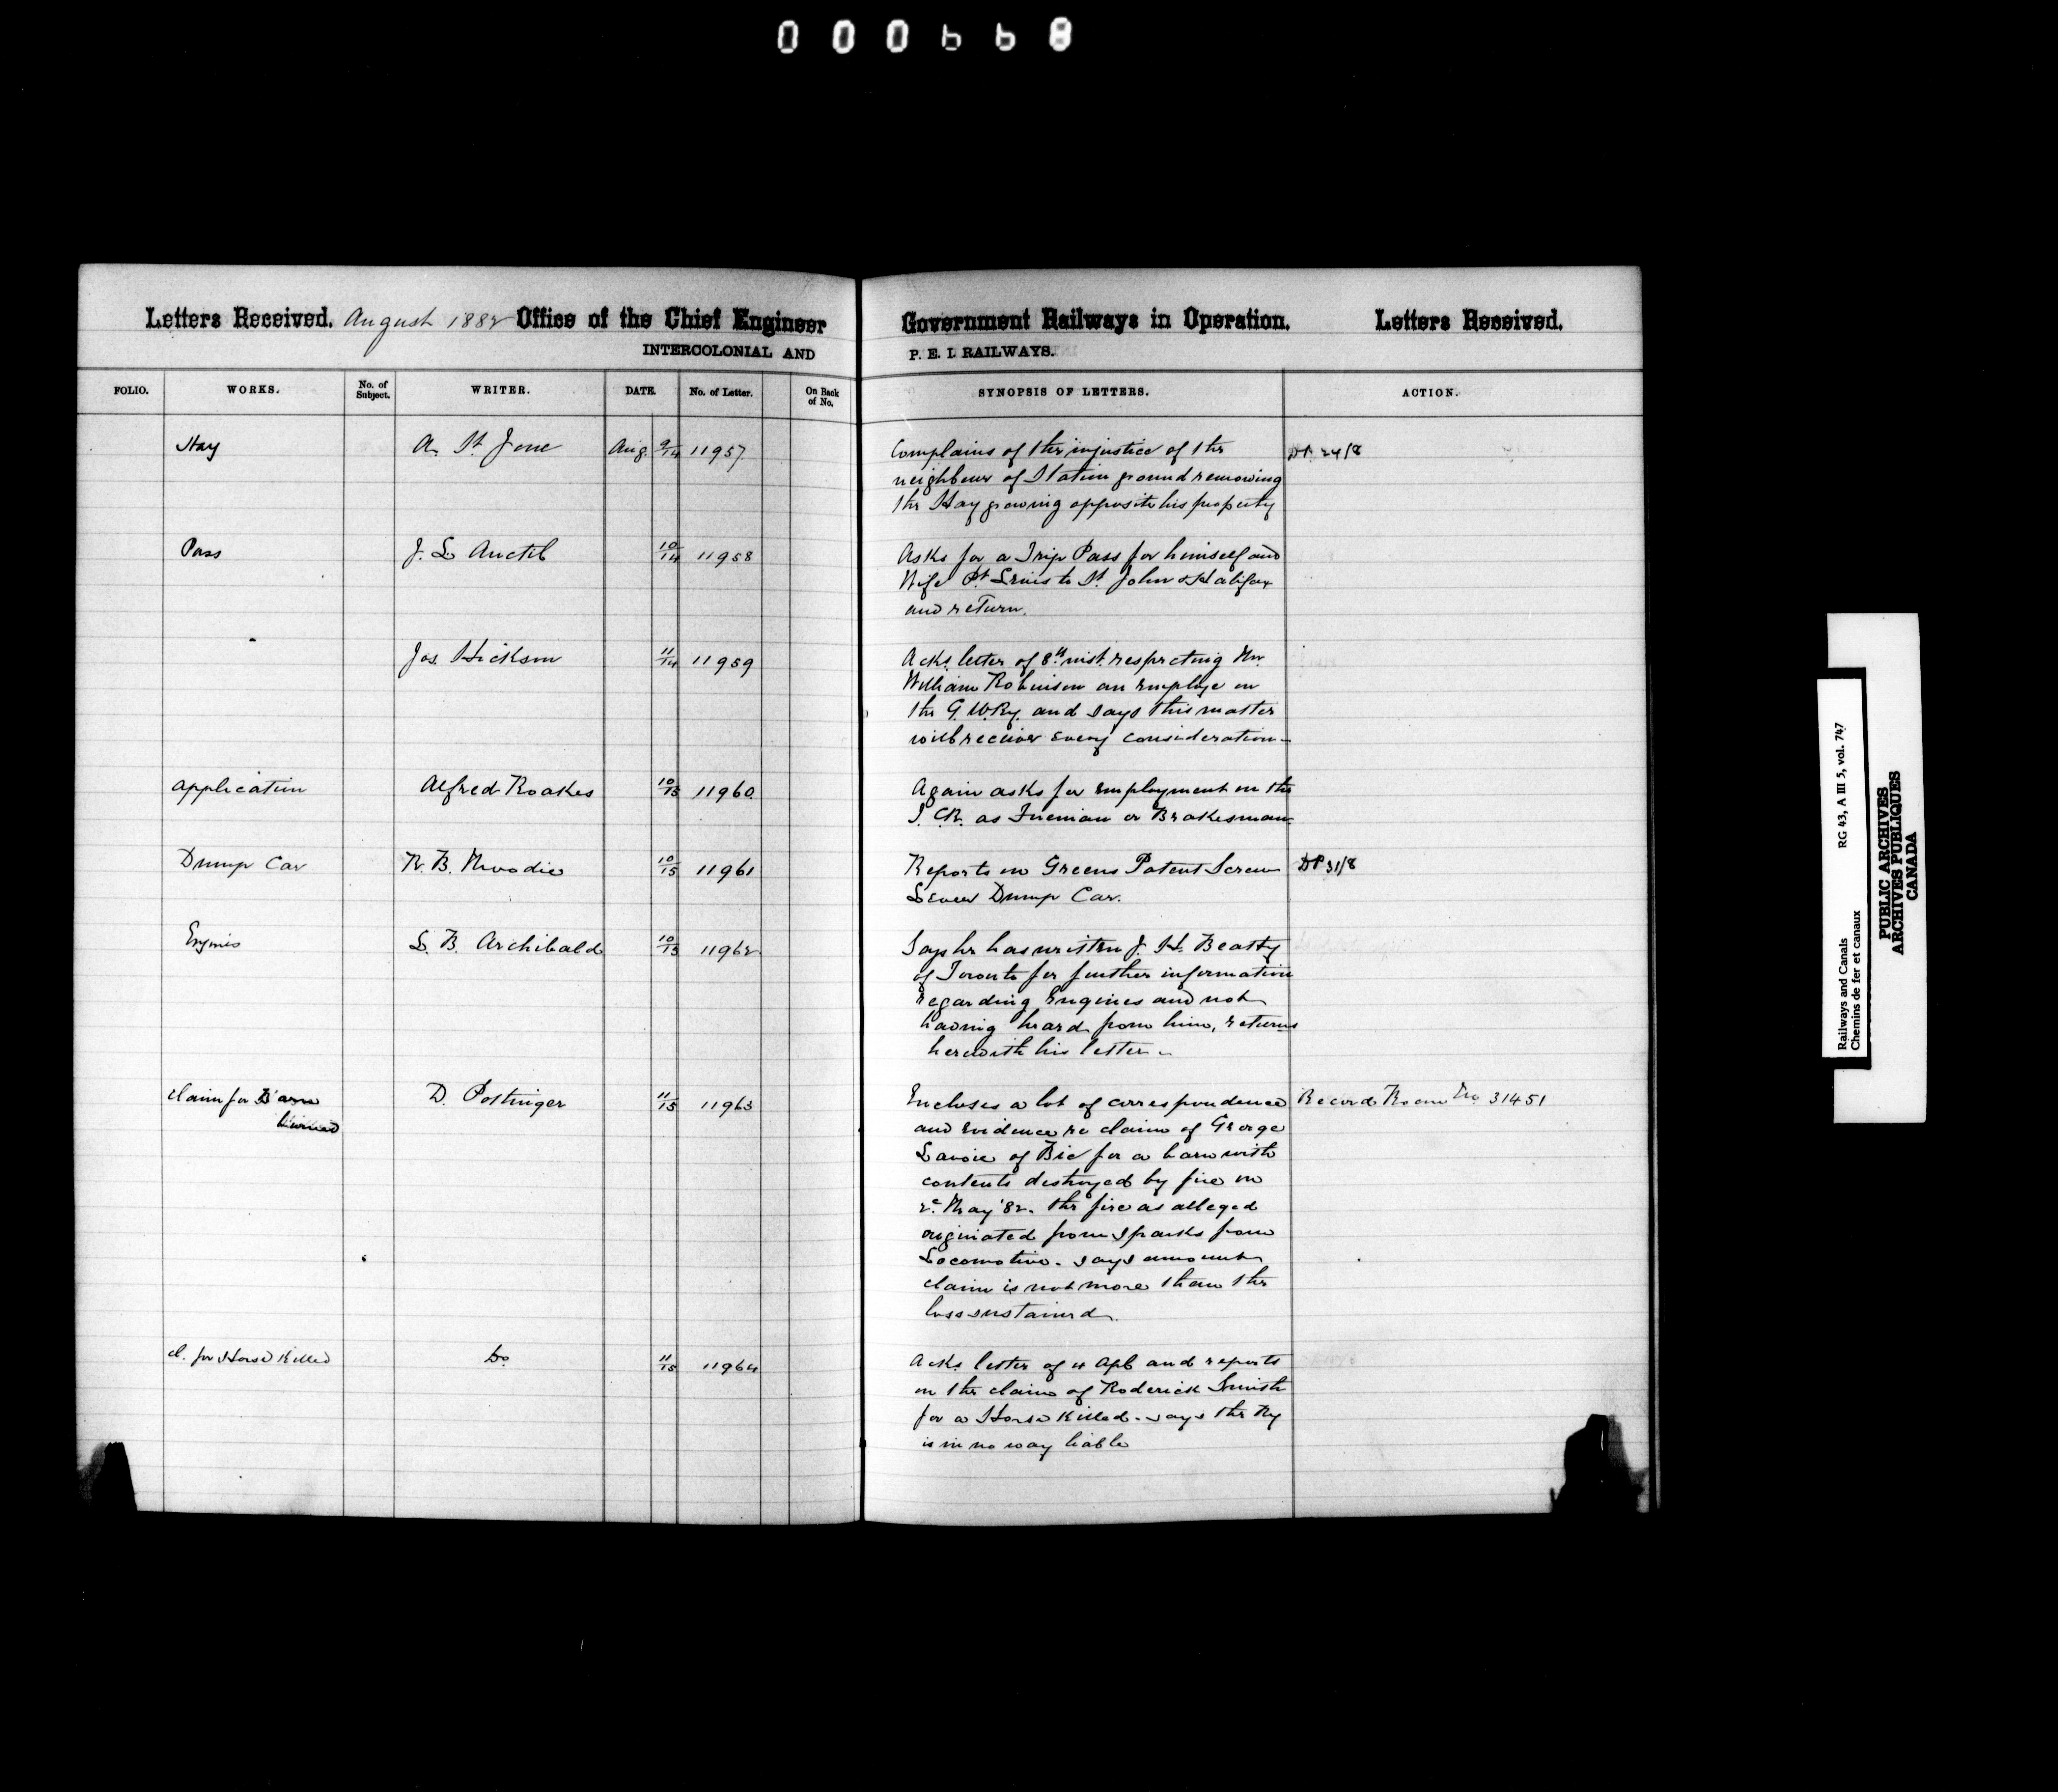 000668
Letters Received. August 1882 Office of the Chief Engineer Government Railways in Operation. Letters Received.
INTERCOLONIAL AND P. E. I. RAILWAYS.
FOLIO. WORKS. No. of Subject. WRITER. DATE. No. of Letter. On Back of No. SYNOPSIS OF LETTERS. ACTION.
Hay A. St Jone Aug. 9/14 11957 Complains of the injustice of the DP. 24/8
neighbour of Station ground removing
the Hay growing opposite his property
Pass J. L. Auctil 10/14 11958 Asks for a Trip Pass for himself and
Wife Pt Levis to St. John & Halifax
and return.
Jos. Hickson 11/14 11959 Acks. letter of 8th inst. respecting Mr.
William Robinson an employe on
the G. W. Ry. and says this matter
will receive every consideration -
Application Alfred Roakes 10/15 11960 Again asks for employment on the
I. C. R. as Fireman or Brakesman
Dump Car R. B. Moodie 10/15 11961 Reports on Greens Patent Screw DP 31/8
Lever Dump Car.
Engines L. B. Archibald 10/15 11962 Says he has written J. H. Beatty
of Toronto for further information
regarding Engines and not
having heard from him, returns
herewith his letter -
Claim for Barn D. Pottinger 11/15 11963 Encloses a lot of correspondence Record Room No 31451
burned and evidence re claim of George
Lavoie of Bic for a barn with
contents destroyed by fire on
2d May '82. the fire as alleged
originated from sparks from
Locomotive. says amount
claim is not more than the
loss sustained.
Cl. for Horse Killed Do 11/15 11964 Acks. letter of 4 Apl and reports
on the claim of Roderick Smith
for a Horse Killed. says the Ry
is in no way liable
Railways and Canals RG 43, A III 5, vol. 747
Chemins de fer et canaux
PUBLIC ARCHIVES
ARCHIVES PUBLIQUES
CANADA